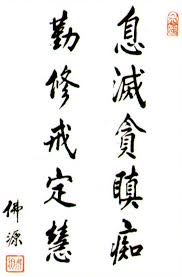 息滅貪瞋痴
勤修戒定慧
佛源